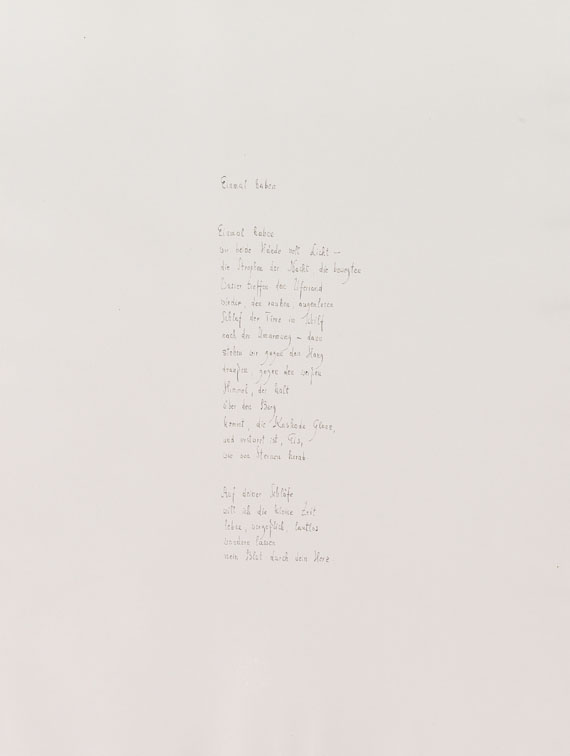 Einmal haben
Einmal haben
wir beide Hände voll Licht –
die Strophen der Nacht, die bewegten
Wasser treffen den Uferrand
wieder, den rauhen, augenlosen
Schlaf der Tiere im Schilf
nach der Umarmung – dann
stehen wir gegen den Hang
draußen, gegen den weißen
Himmel, der kalt
über den Berg
kommt, die Kaskade Glanz,
und erstarrt ist, Eis,
wie von Sternen herab.
Auf deiner Schläfe
will ich die kleine Zeit
leben, vergeßlich, lautlos
wandern lassen
mein Blut durch dein Herz.